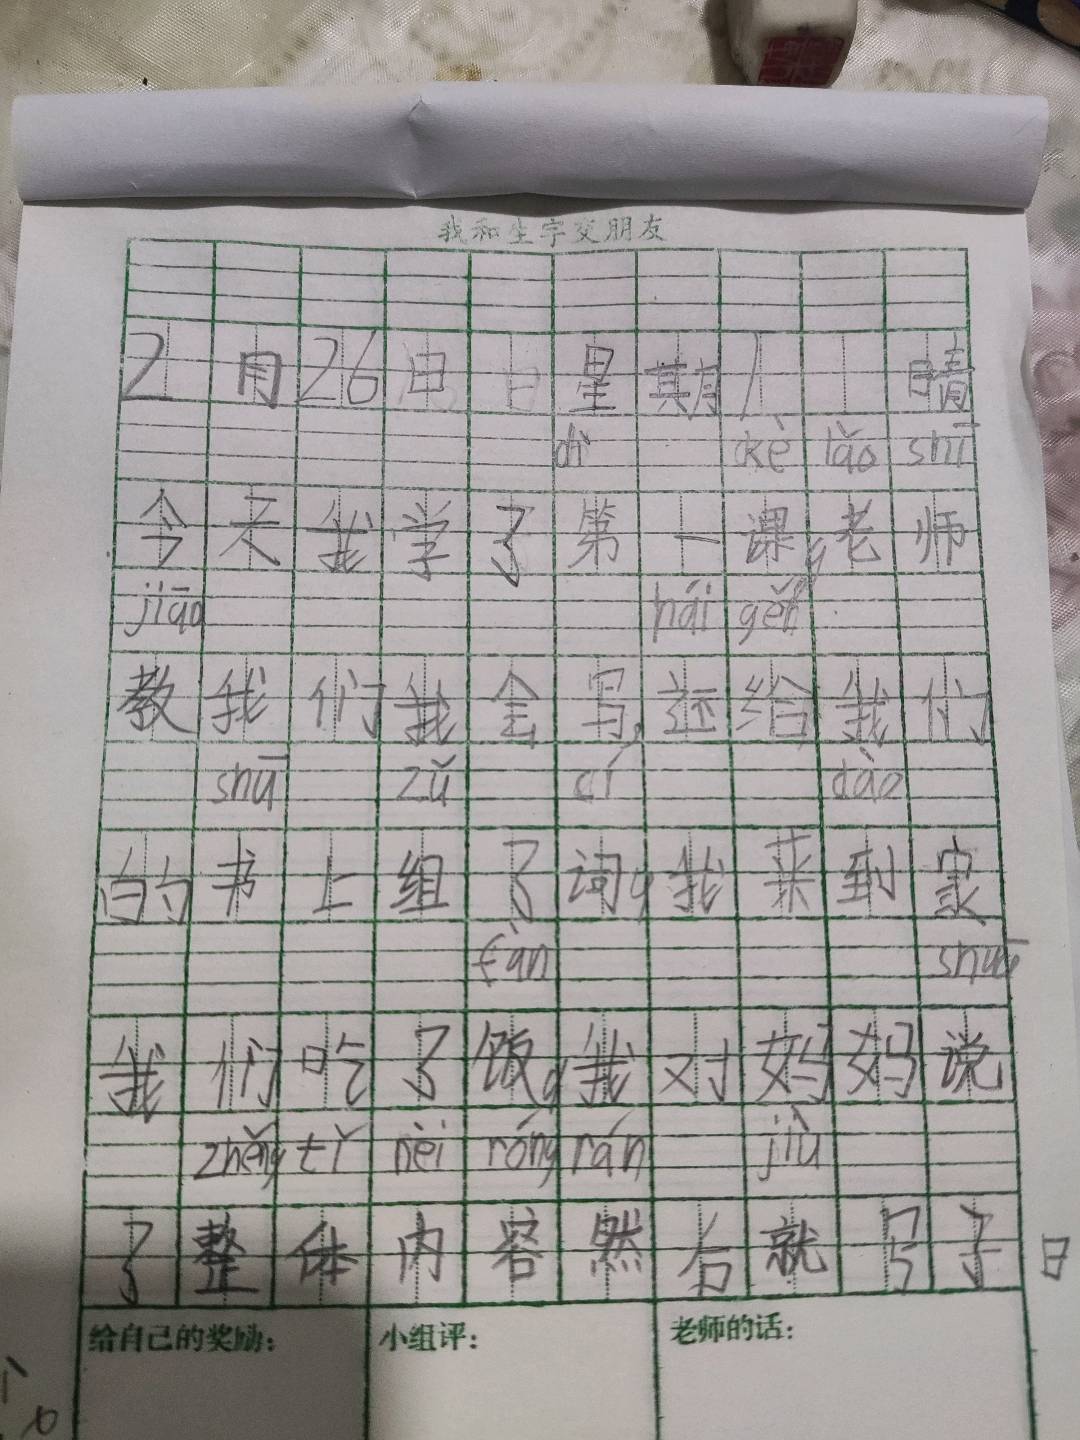 我和生字交朋友
2月26日 星期1 晴
dì kè lǎo shī
今天我学了第一课,老师
jiāo hái gěi
教我们我会写,还给我们
shū zǔ cí dào
的书上组了词,我来到家
fàn shuō
我们吃了饭,我对妈妈说
zhěng tǐ nèi róng rán jiù
了整体内容然后就写了日
给自己的奖励: 小组评: 老师的话: